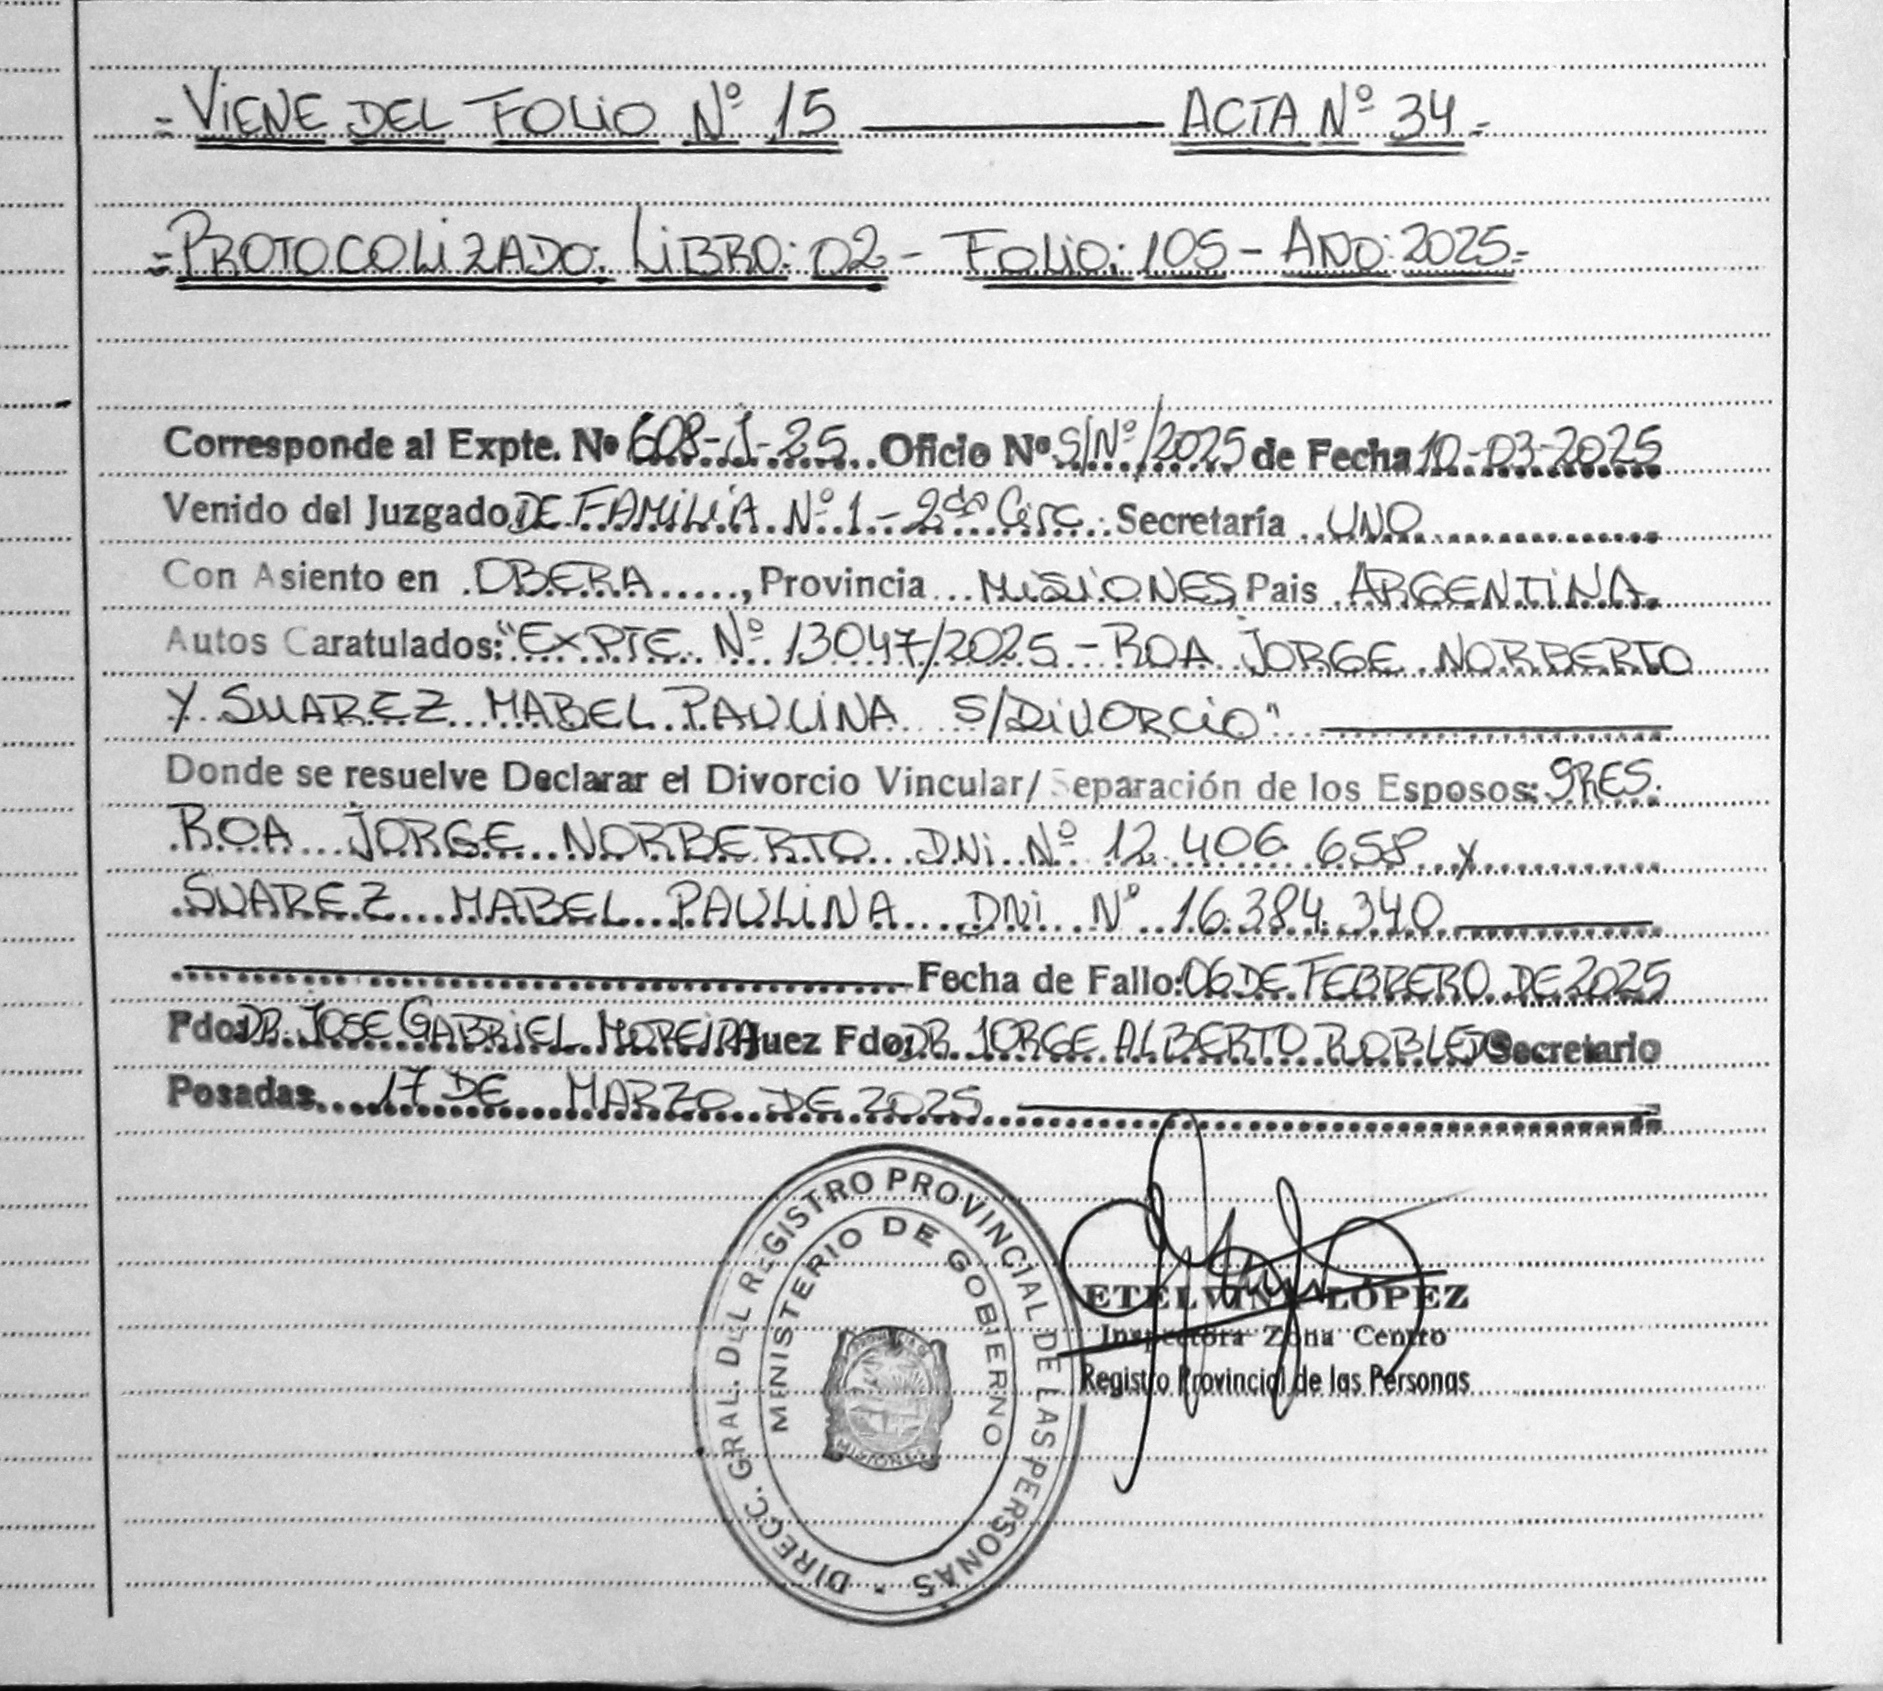 = VIENE DEL FOLIO Nº 15 ACTA Nº 34 =
= PROTOCOLIZADO: LIBRO: 02 - FOLIO: 105 - AÑO: 2025 =
Corresponde al Expte. Nº 608-J-25 Oficio Nº S/Nº/2025 de Fecha 10-03-2025
Venido del Juzgado DE FAMILIA Nº 1 - 2da Circ. Secretaría UNO
Con Asiento en OBERA, Provincia MISIONES, Pais ARGENTINA.
Autos Caratulados: "EXPTE Nº 13047/2025 - ROA JORGE NORBERTO
Y SUAREZ MABEL PAULINA S/DIVORCIO"
Donde se resuelve Declarar el Divorcio Vincular/ Separación de los Esposos: SRES.
ROA JORGE NORBERTO DNI Nº 12.406.658 y
SUAREZ MABEL PAULINA DNI Nº 16.384.340
Fecha de Fallo: 06 DE FEBRERO DE 2025
Fdo: DR. JOSE GABRIEL MOREIRA Juez Fdo: DR. JORGE ALBERTO ROBLEDO Secretario
Posadas 17 DE MARZO DE 2025
DIRECC. GRAL. DEL REGISTRO PROVINCIAL DE LAS PERSONAS
MINISTERIO DE GOBIERNO
MISIONES
ETELVINA LOPEZ
Inspectora Zona Centro
Registro Provincial de las Personas